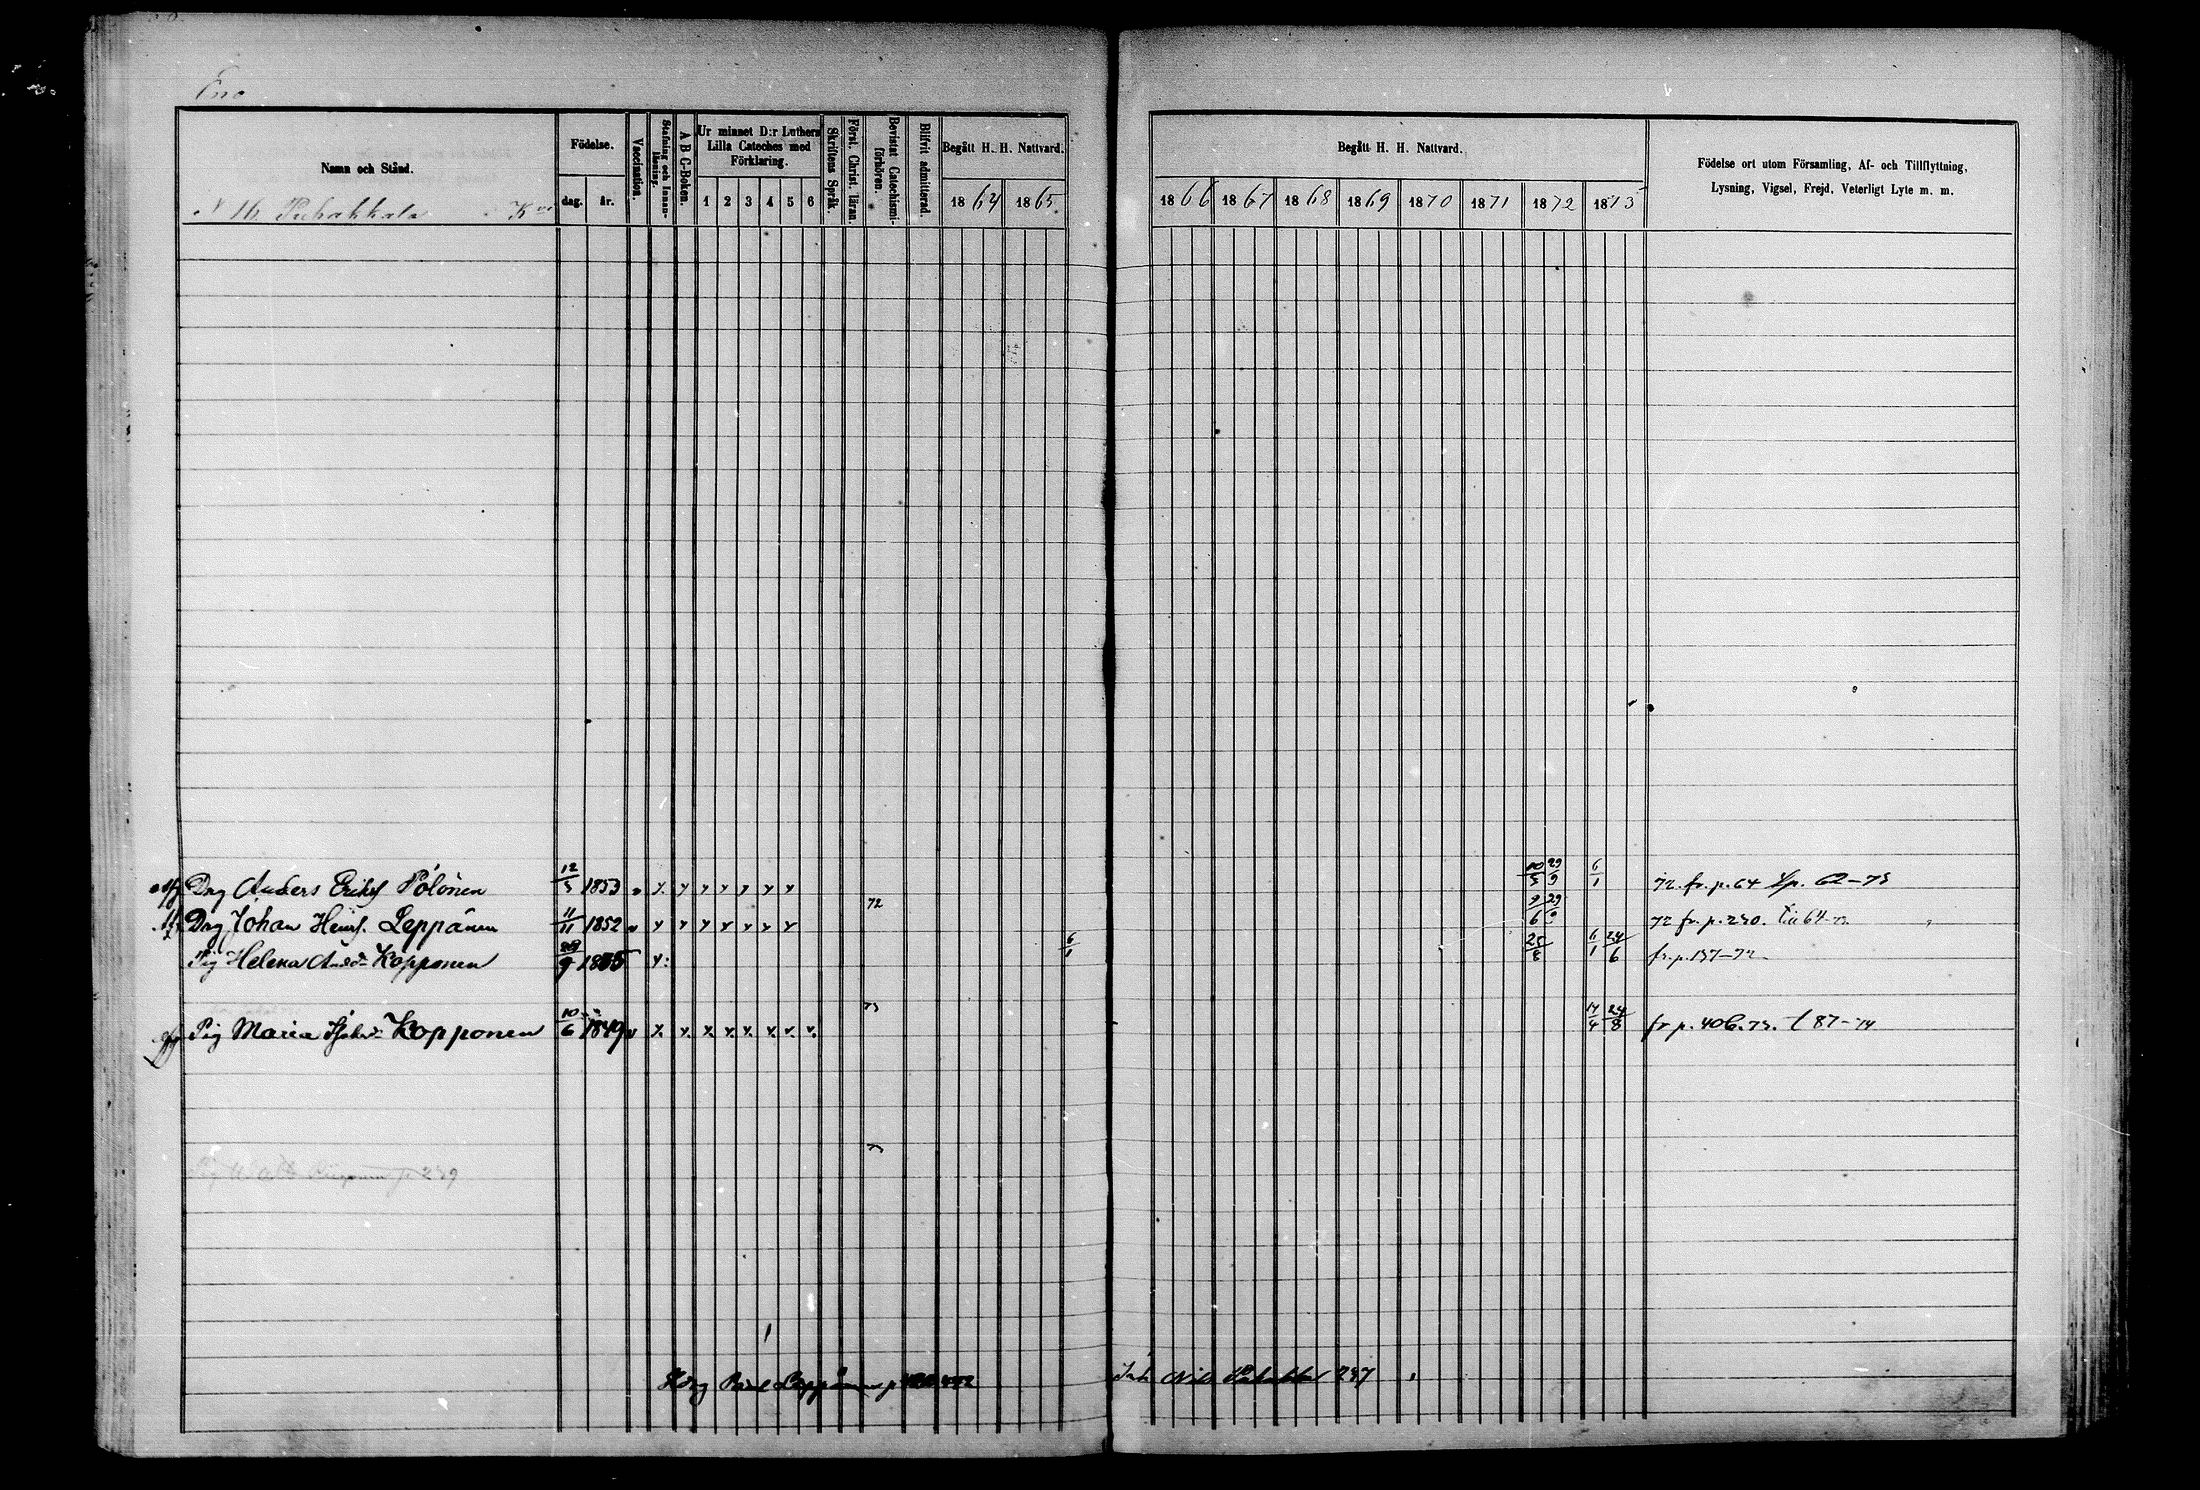 Eno
Namn och Stånd.
N 16. Puhakkala
Födelse.
dag. år.
Vaccination.
Stafning och Innan-läsning.
A B C-Boken.
Ur minnet D:r Luthers Lilla Cateches med Förklaring.
1 2 3 4 5 6
Skriftens Språk.
Först. Christ. läran.
Bevistat Catechismi-förhören.
Blifvit admitterad.
Begått H. H. Nattvard.
1864 1865
Begått H. H. Nattvard.
1866 1867 1868 1869 1870 1871 1872 1873
Födelse ort utom Församling, Af- och Tillflyttning,
Lysning, Vigsel, Frejd, Veterligt Lyte m. m.
Drg Anders Eriks Polönen 12/3 1853 10/3 29/9 6/1 72. fr. p. 64 62-73
72
Drg Johan Henrs. Leppänen 11/11 1852 9/6 29/9 72 fr. p. 230. till 64-73
Pig Helena Andrs Kopponen 29/9 1855 6/1 25/8 6/1 24/6 fr. p. 137-72
73
Pig Maria Kopponen 10/6 1849 14/4 24/8 fr p. 406.73. t 87-74
73
p 239
Drg Paul Leppänen p 442
Nils Puhakka 237